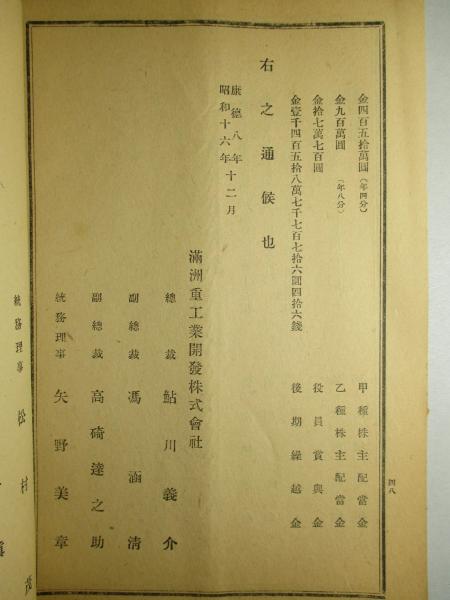 金四百五拾萬圓(年四分) 甲種株主配當金
金九百萬圓(年八分) 乙種株主配當金
金拾七萬七百圓 役員賞與金
金壹千四百五拾八萬七千七百七拾六圓四拾六錢 後期繰越金
右之通候也
康德八年
昭和十六年十二月
滿洲重工業開發株式會社
總裁 鮎川義介
副總裁 馮涵淸
副總裁 高碕達之助
統務理事 矢野美章
統務理事 松村
四八